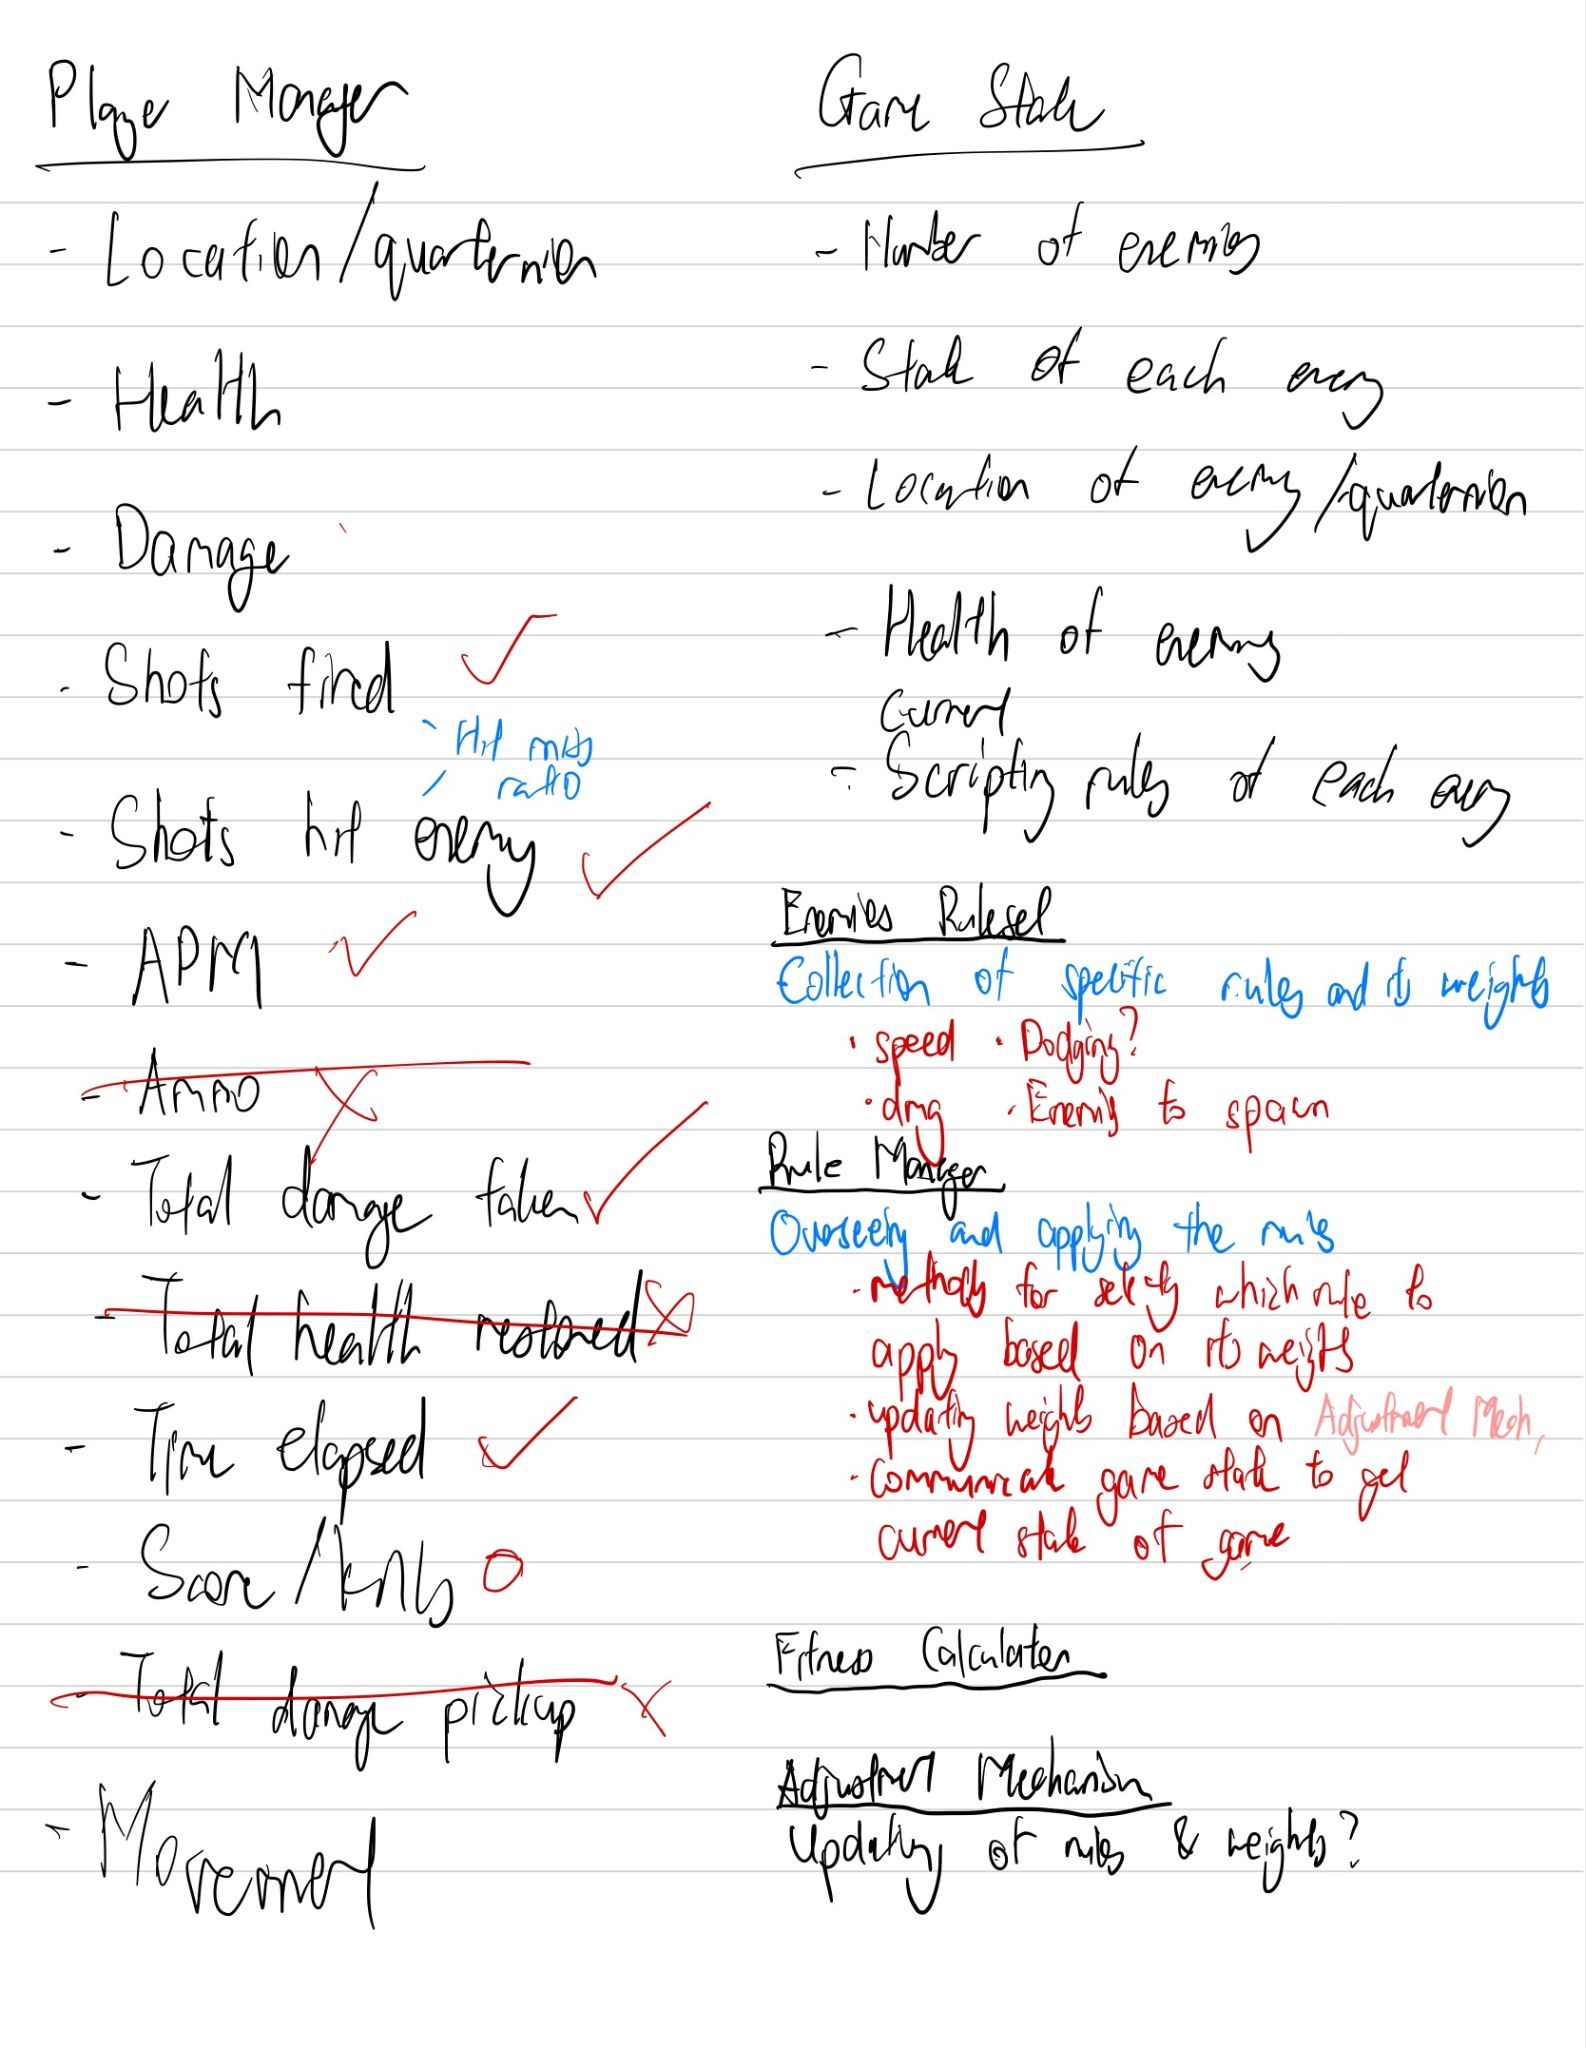 Player Manager
- Location/quarternion
- Health
- Damage
- Shots fired
Hit miss
ratio
- Shots hit enemy
- APM
- Ammo
- Total damage taken
- Total health restored
- Time elapsed
- Score/kills
- Total damage pickup
- Movement
Game State
- Number of enemies
- State of each enemy
- Location of enemy/quarternion
- Health of enemy
Current
- Scripting rules of each enemy
Enemies Ruleset
Collection of specific rules and its weights
· speed · Dodging?
· dmg · Enemies to spawn
Rule Manager
Overseeing and applying the rules
· methods for selecting which rule to
apply based on its weights
· updating weights based on Adjustment Mech.
· Communicate game state to get
current state of game
Fitness Calculator
Adjustment Mechanism
Updating of rules & weights?